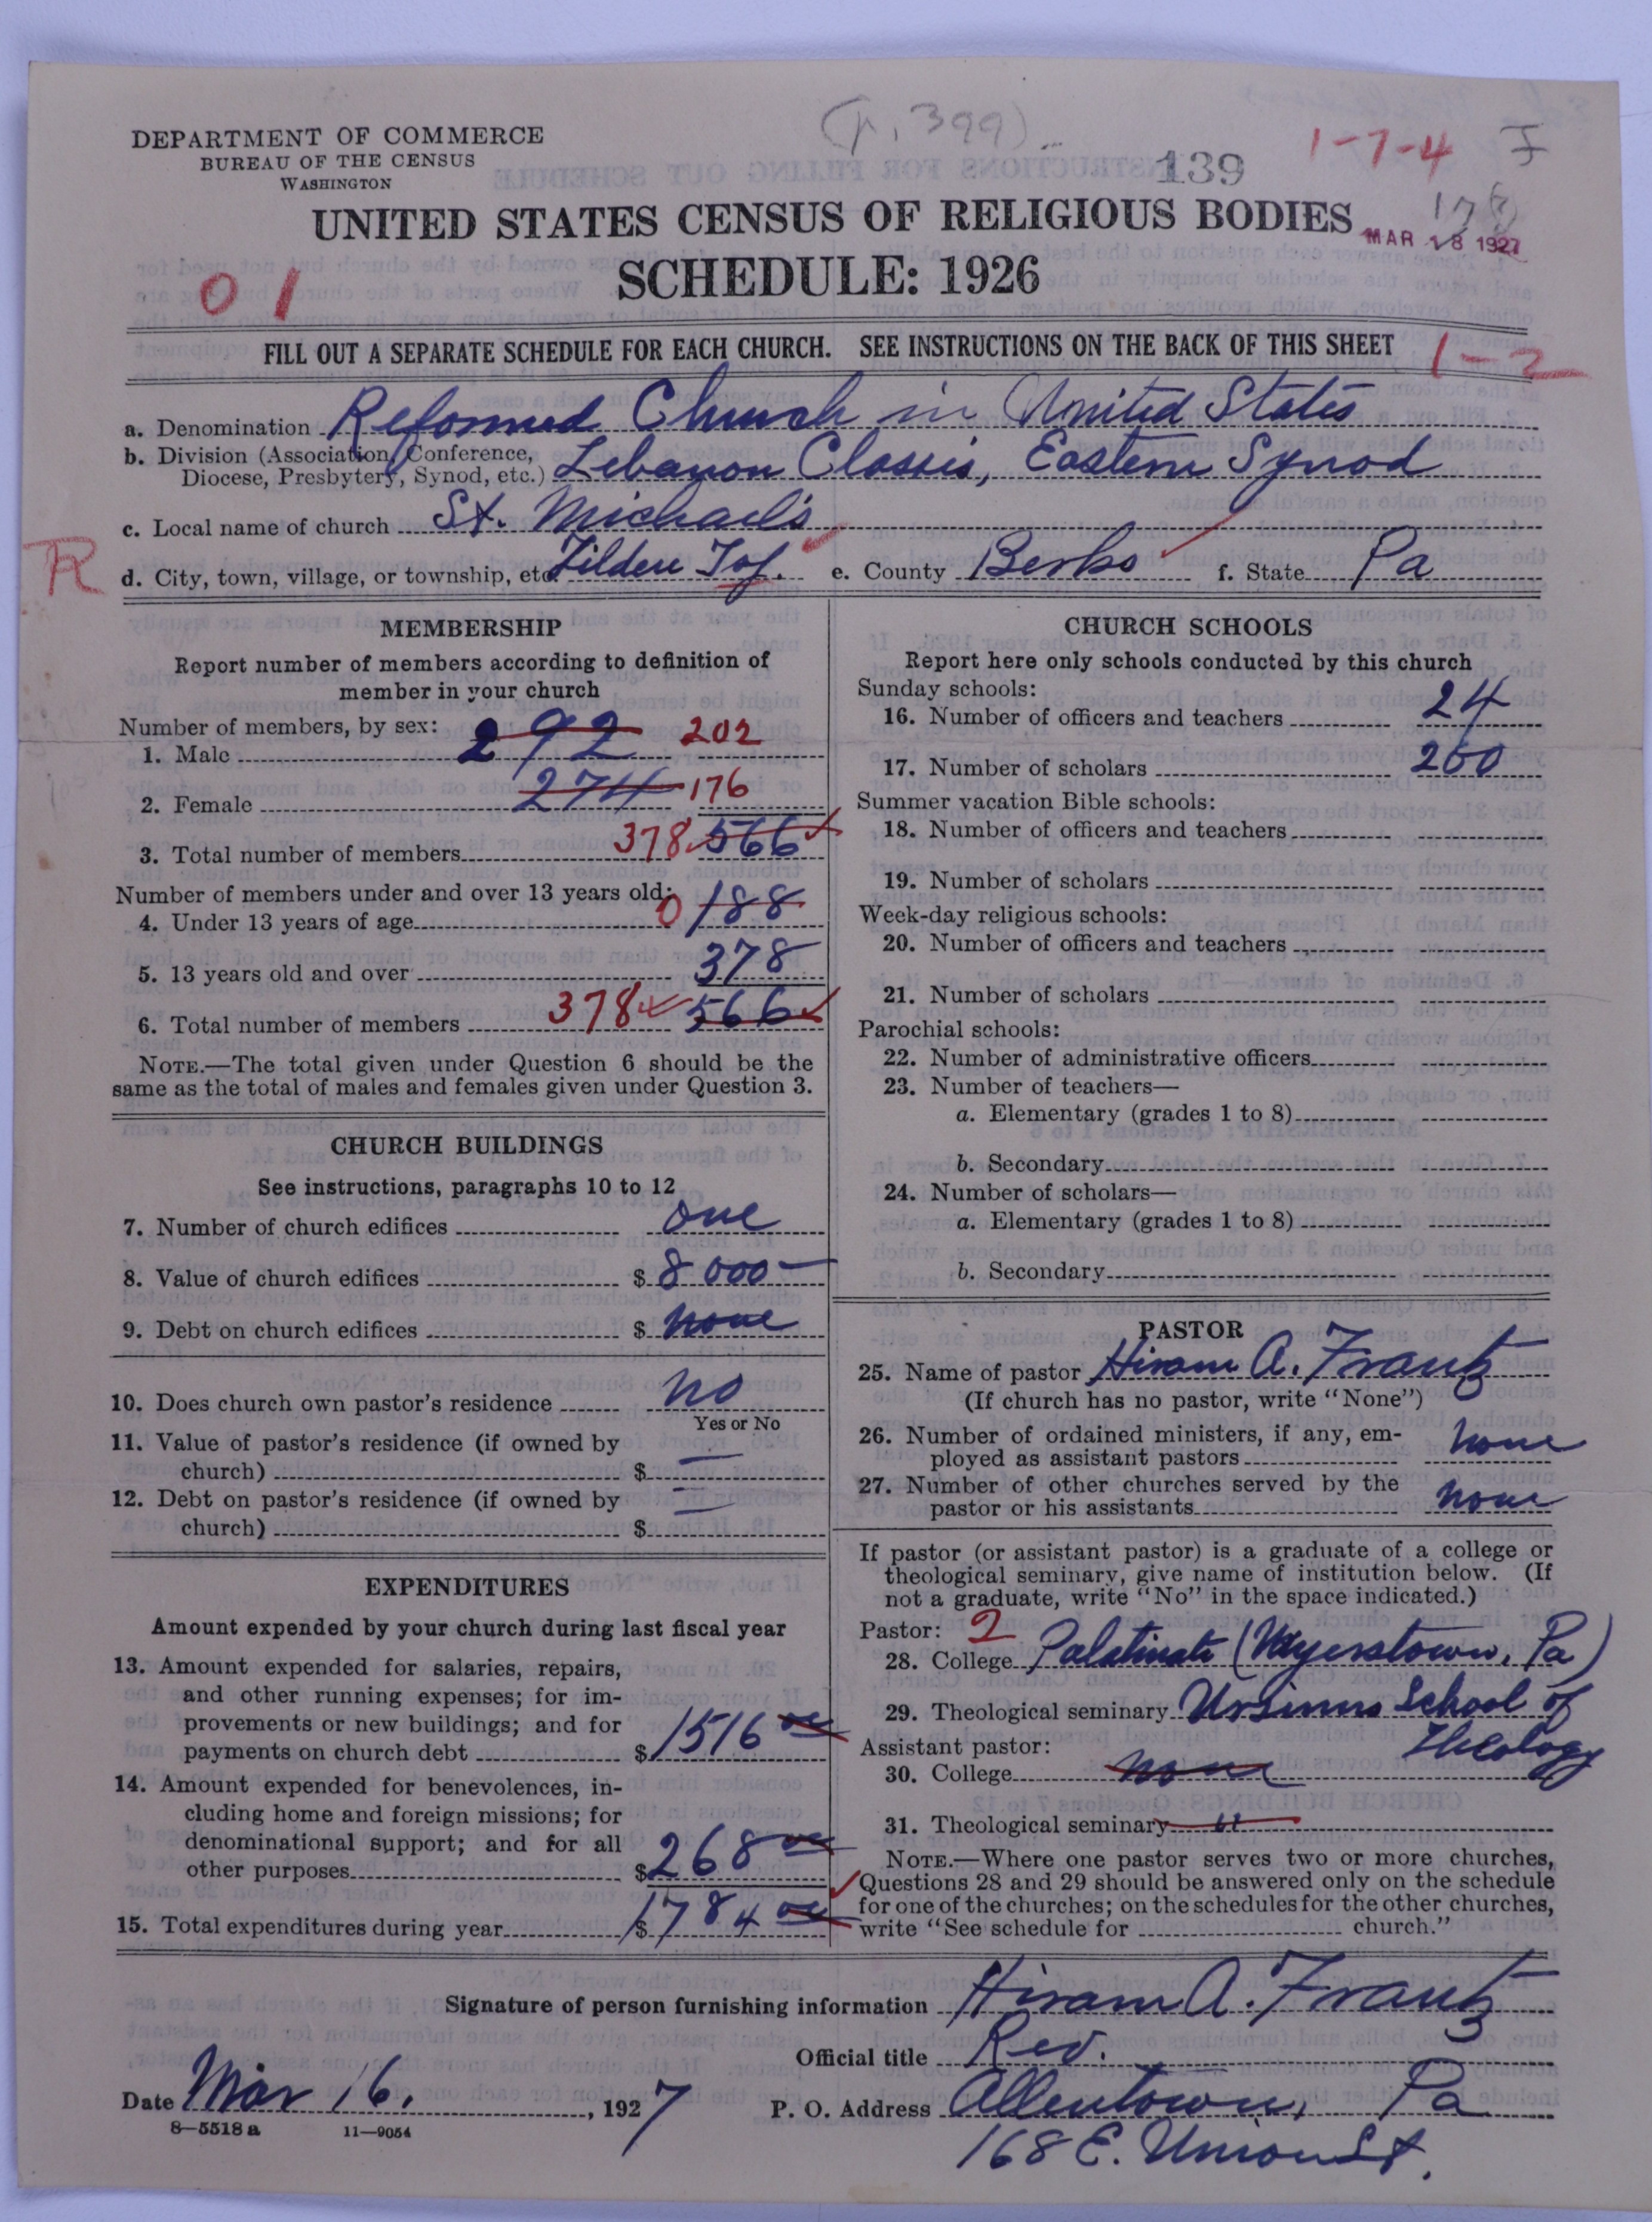 (p. 399)
DEPARTMENT OF COMMERCE
BUREAU OF THE CENSUS
WASHINGTON
139
1-7-4
UNITED STATES CENSUS OF RELIGIOUS BODIES
MAR 18 1927
SCHEDULE: 1926
01
FILL OUT A SEPARATE SCHEDULE FOR EACH CHURCH. SEE INSTRUCTIONS ON THE BACK OF THIS SHEET
1-2
a. Denomination Reformed Church in United States
b. Division (Association, Conference,
Diocese, Presbytery, Synod, etc.) Lebanon Classis, Eastern Synod
c. Local name of church St. Michael's
R
d. City, town, village, or township, etc. Tilden Top. e. County Berks f. State Pa
MEMBERSHIP
Report number of members according to definition of
member in your church
Number of members, by sex:
1. Male 292 202
2. Female 274 176
3. Total number of members 378 566
Number of members under and over 13 years old:
4. Under 13 years of age 0 188
5. 13 years old and over 378
6. Total number of members 378 566
NOTE.—The total given under Question 6 should be the
same as the total of males and females given under Question 3.
CHURCH BUILDINGS
See instructions, paragraphs 10 to 12
7. Number of church edifices one
8. Value of church edifices $ 8000—
9. Debt on church edifices $ none
10. Does church own pastor's residence no
Yes or No
11. Value of pastor's residence (if owned by
church) $ —
12. Debt on pastor's residence (if owned by
church) $ —
EXPENDITURES
Amount expended by your church during last fiscal year
13. Amount expended for salaries, repairs,
and other running expenses; for im-
provements or new buildings; and for
payments on church debt $ 1516 00
14. Amount expended for benevolences, in-
cluding home and foreign missions; for
denominational support; and for all
other purposes $ 268 00
15. Total expenditures during year $ 1784 00
CHURCH SCHOOLS
Report here only schools conducted by this church
Sunday schools:
16. Number of officers and teachers 24
17. Number of scholars 260
Summer vacation Bible schools:
18. Number of officers and teachers
19. Number of scholars
Week-day religious schools:
20. Number of officers and teachers
21. Number of scholars
Parochial schools:
22. Number of administrative officers
23. Number of teachers—
a. Elementary (grades 1 to 8)
b. Secondary
24. Number of scholars—
a. Elementary (grades 1 to 8)
b. Secondary
PASTOR
25. Name of pastor Hiram A. Frantz
(If church has no pastor, write "None")
26. Number of ordained ministers, if any, em-
ployed as assistant pastors none
27. Number of other churches served by the
pastor or his assistants none
If pastor (or assistant pastor) is a graduate of a college or
theological seminary, give name of institution below. (If
not a graduate, write "No" in the space indicated.)
Pastor: 2
28. College Palatinate (Myerstown, Pa)
29. Theological seminary Ursinus School of
Theology
Assistant pastor:
30. College none
31. Theological seminary "
NOTE.—Where one pastor serves two or more churches,
Questions 28 and 29 should be answered only on the schedule
for one of the churches; on the schedules for the other churches,
write "See schedule for church."
Signature of person furnishing information Hiram A. Frantz
Official title Rev.
Date Mar 16, 1927 P. O. Address Allentown, Pa
168 E. Union St.
8—5518a 11—9054